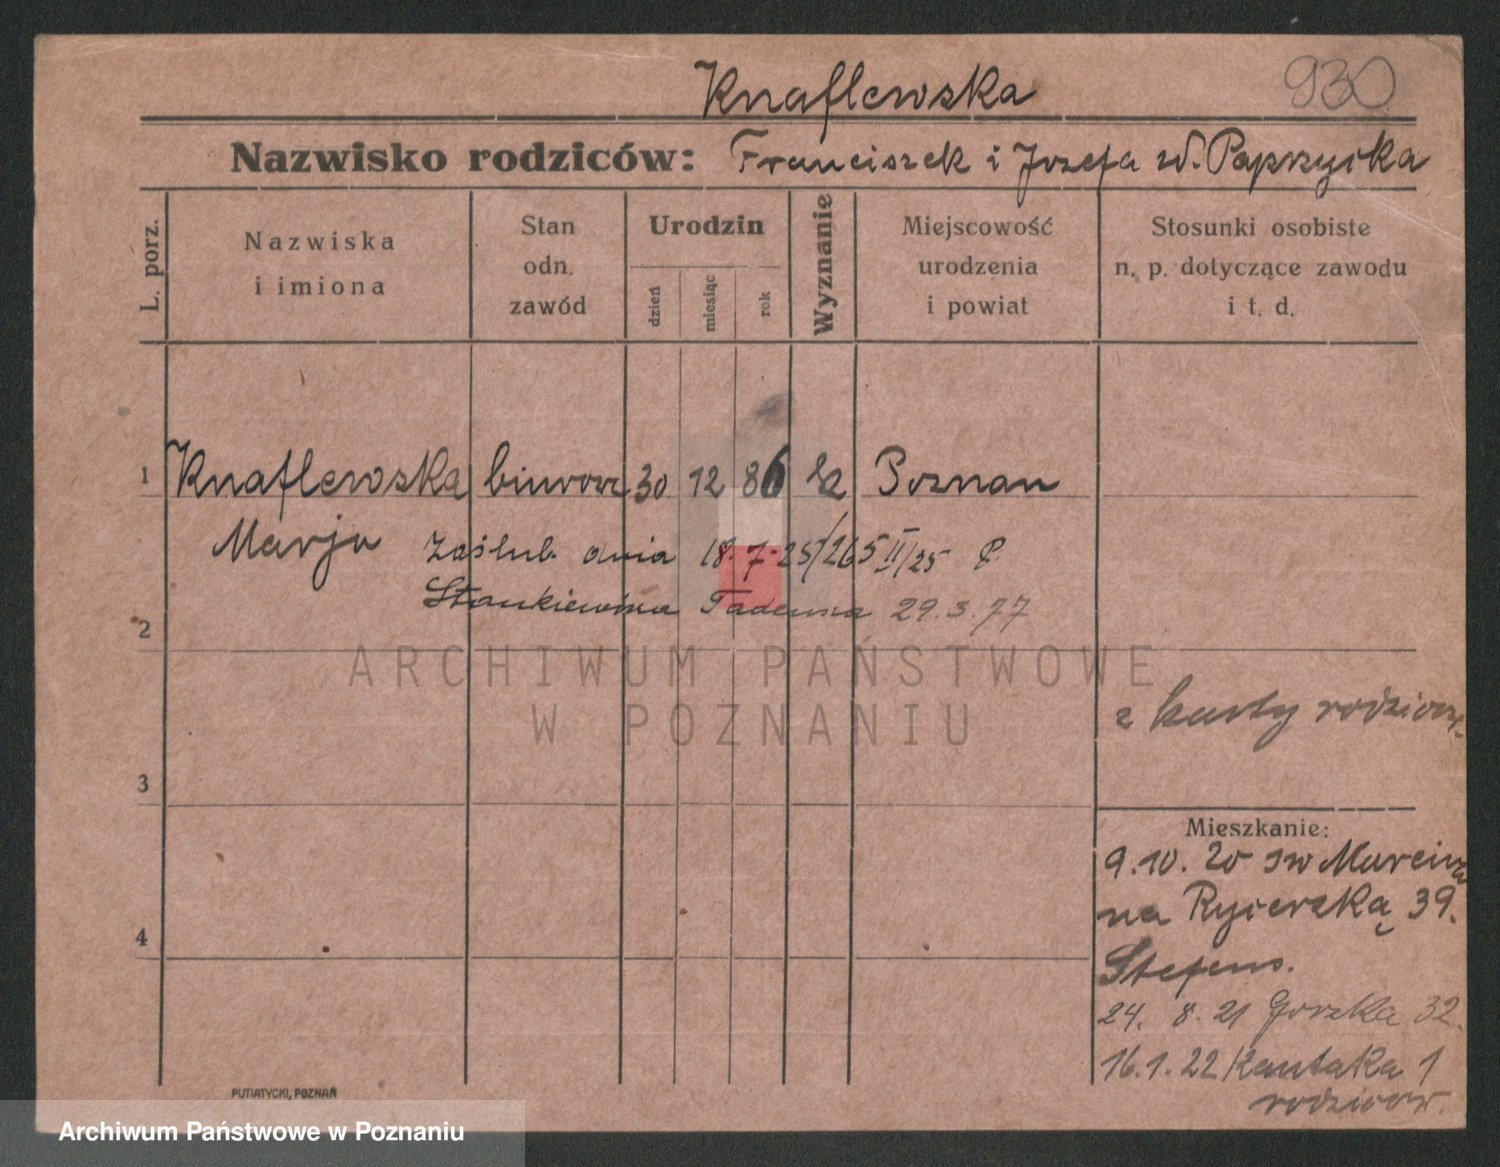 Knaflewska 930
Nazwisko rodziców: Franciszek i Józefa zd. Paprzycka
L. porz.
Nazwiska
i imiona
Stan
odn.
zawód
Urodzin
dzień
miesiąc
rok
Wyznanie
Miejscowość
urodzenia
i powiat
Stosunki osobiste
n. p. dotyczące zawodu
i t. d.
1 Knaflewska 30 12 86 Poznan
Marja zaślub. dnia 18.7.25/265 II/25
29.3.77
2
z karty rodziców.
3
Mieszkanie:
9.10.20 Św Marcina
na Rycerską 39.
4
24. 8. 21 Gorzka 32.
16.1.22 Kantaka 1
rodziców.
PUTIATYCKI, POZNAŃ
ARCHIWUM PAŃSTWOWE
W POZNANIU
Archiwum Państwowe w Poznaniu